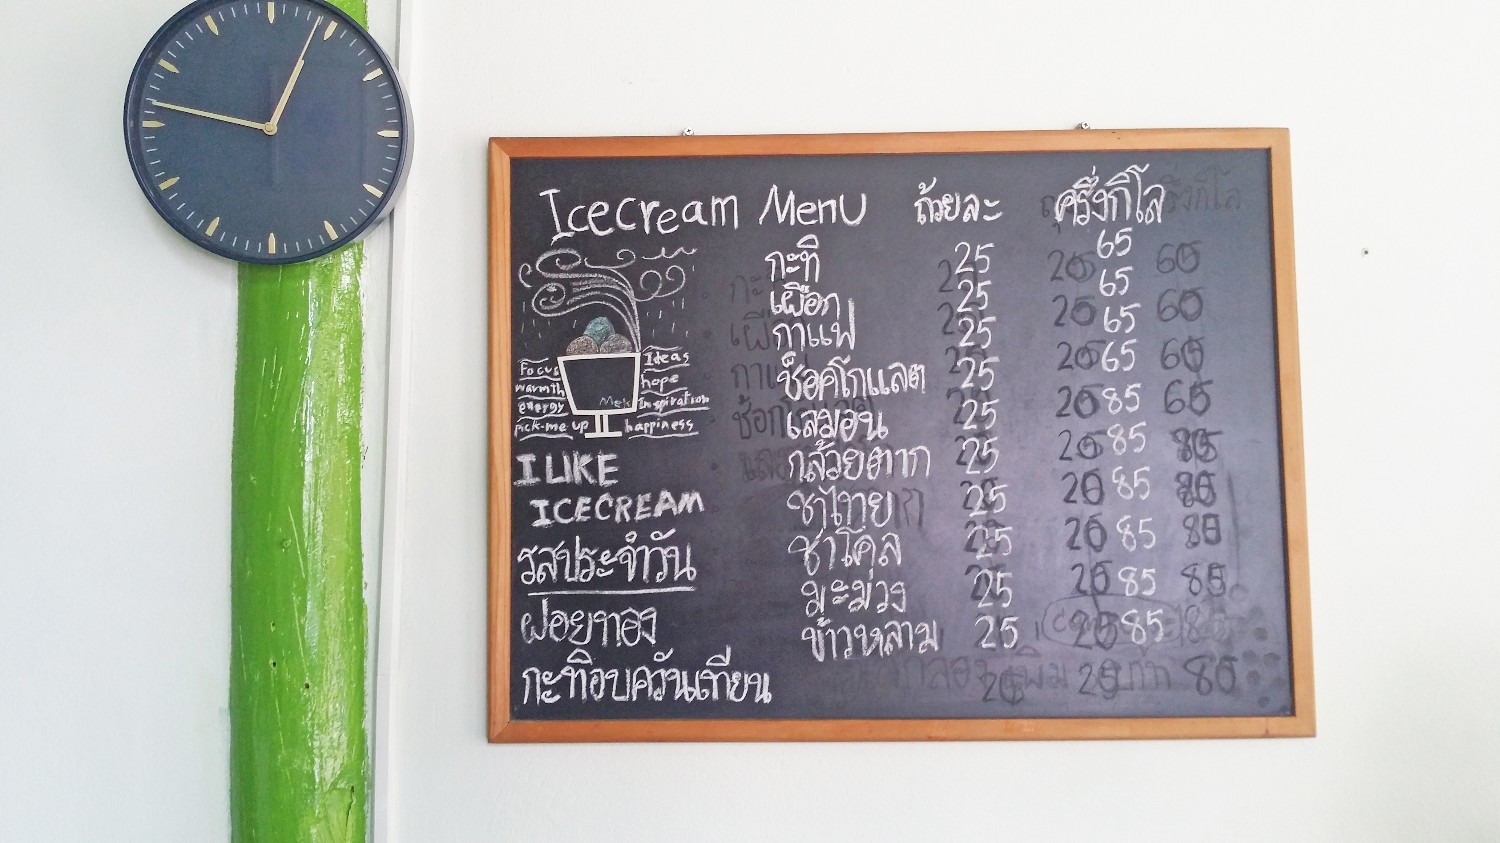 Icecream Menu ถ้วยละ ครึ่งกิโล
กะทิ 25 65
เผือก 25 65
กาแฟ 25 65
ช็อคโกแลต 25 65
เลมอน 25 85
กล้วยตาก 25 85
ชาไทย 25 85
ชาโคล 25 85
มะม่วง 25 85
ข้าวหลาม 25 85
Focus Ideas
warmth hope
energy Mek Inspiration
pick-me up happiness
I LIKE
ICECREAM
รสประจำวัน
ฝอยทอง
กะทิอบควันเทียน